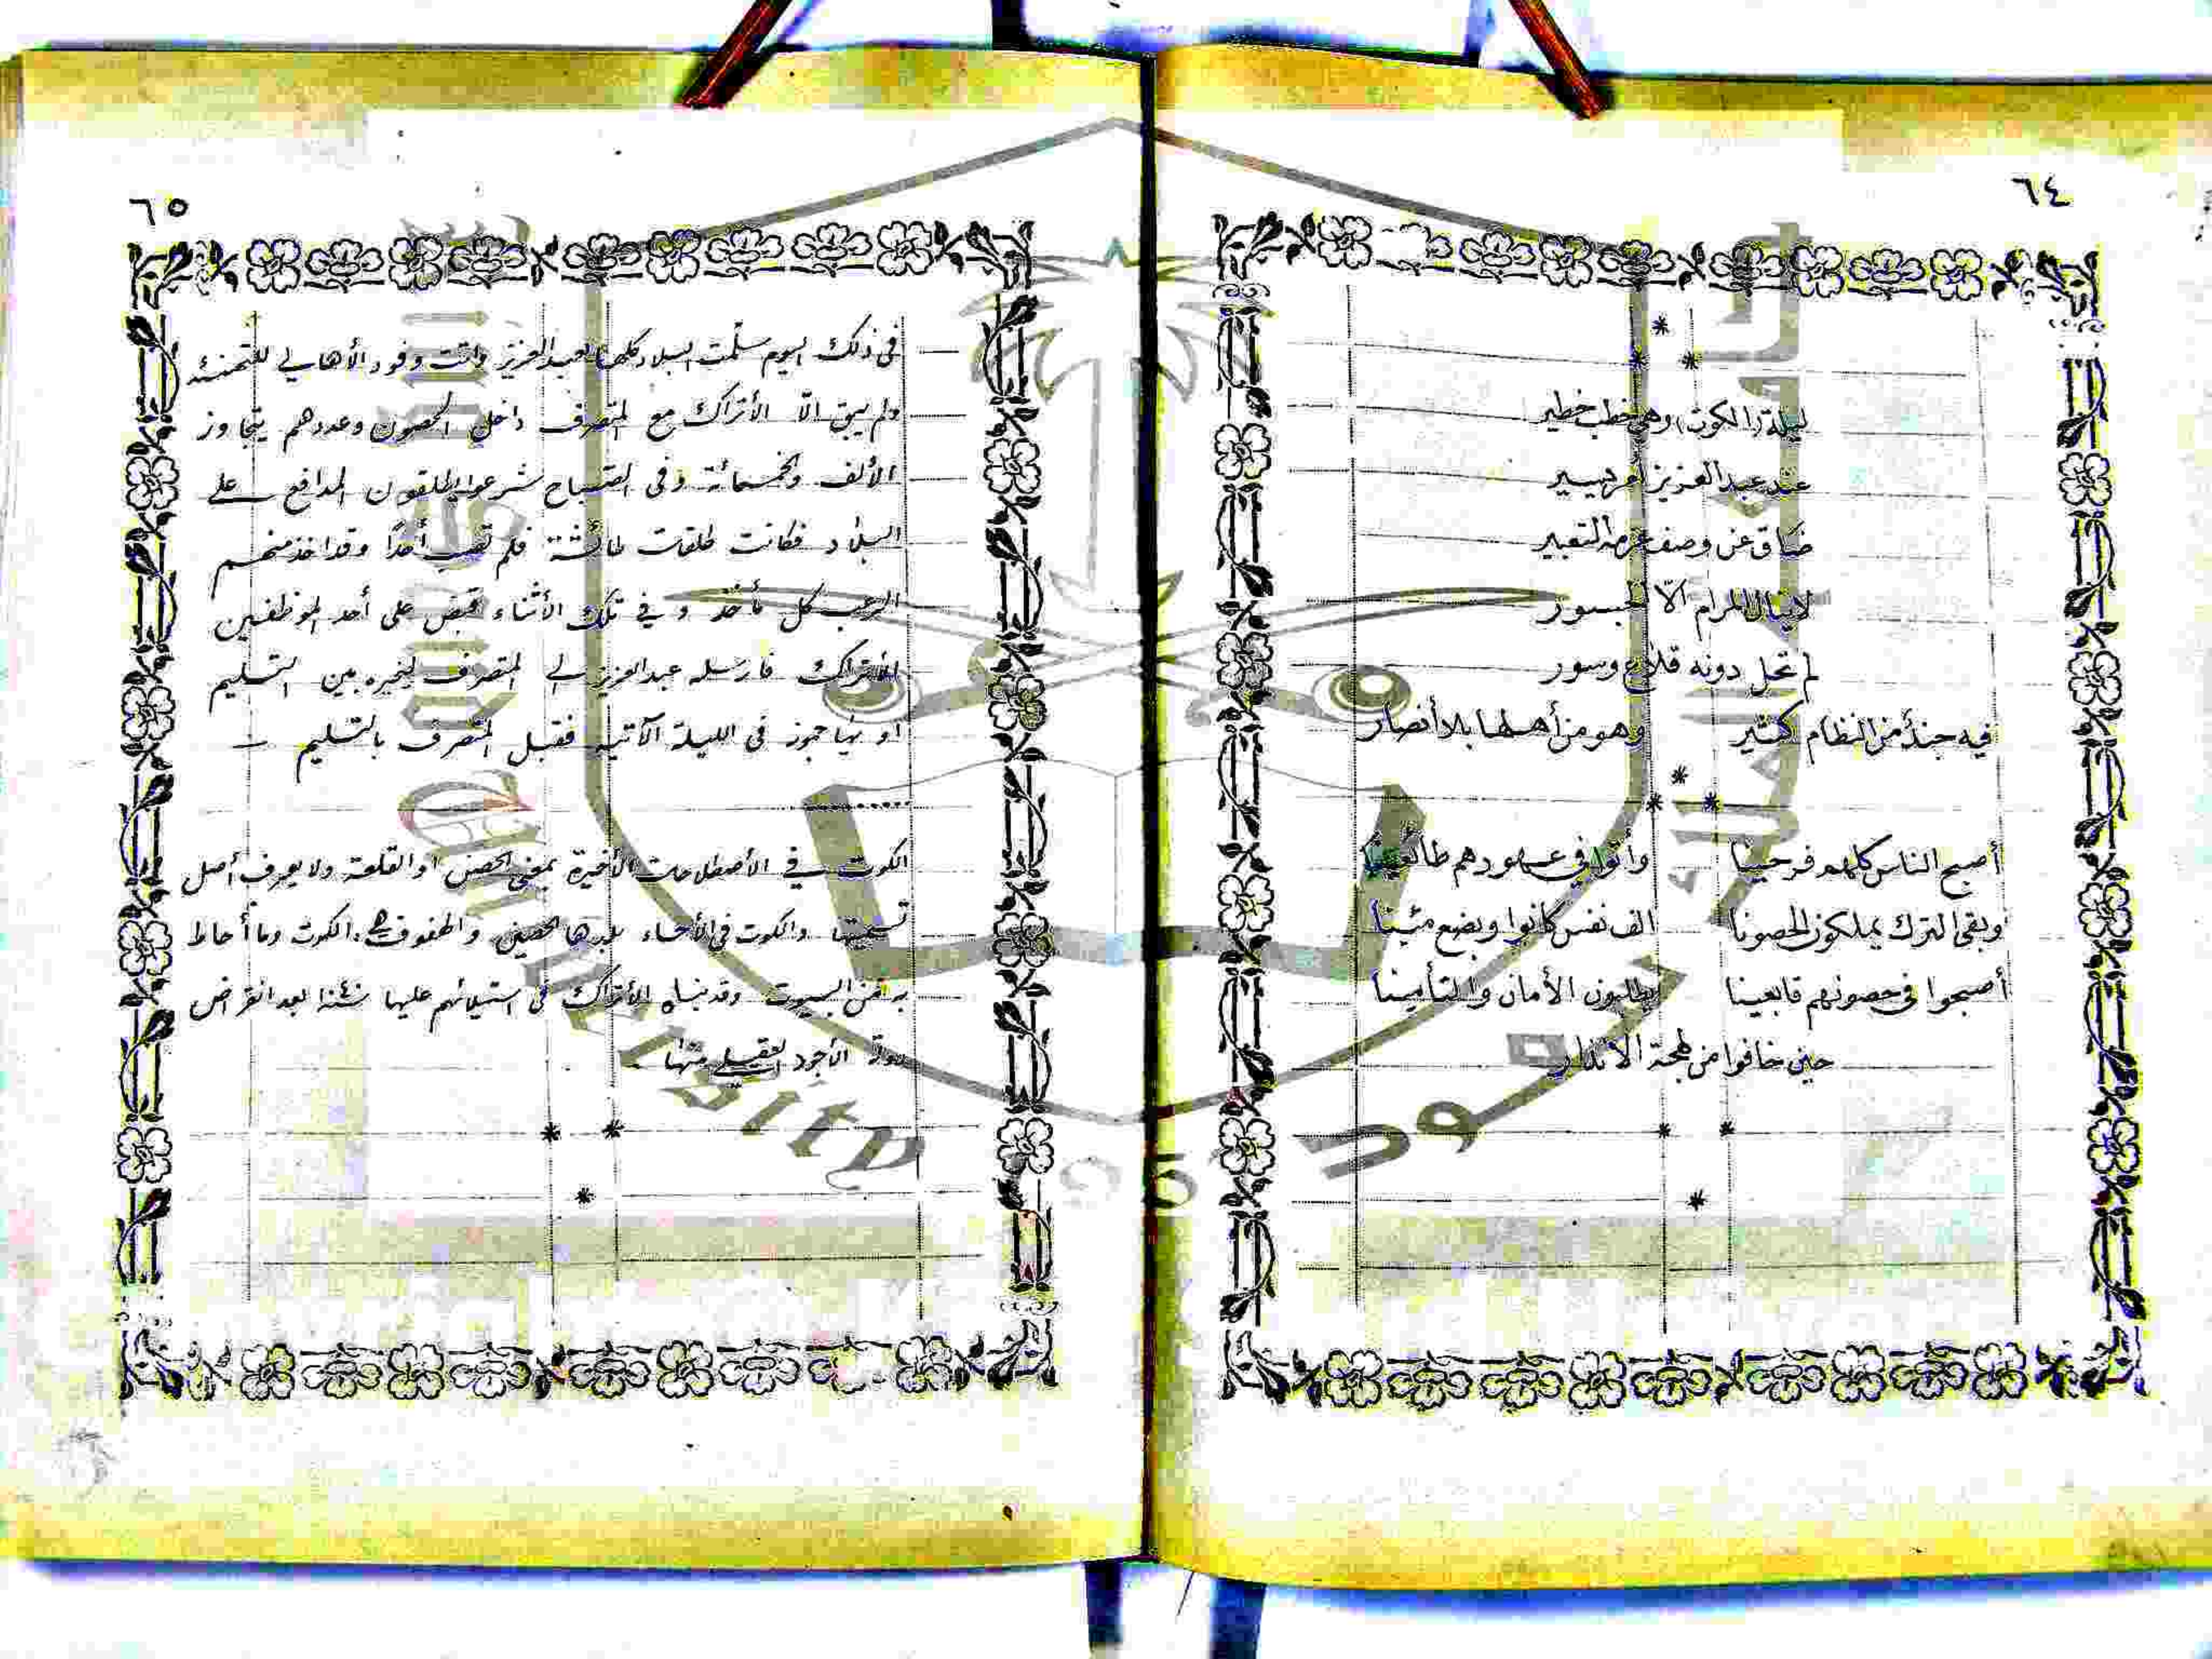 ٦٤
ليلة (الكوت) وهي خطب خطير
عند عبد العزيز أمر يسير
ضاق عن وصف عزمه التعبير
لا ينال المرام الّا الجسور
لم تحل دونه قلاع وسور
فيه جند من النظام كثير وهو من أهلها بلا أنصار
أصبح الناس كلهم فرحينا وأتوا في عهودهم طائعينا
وبقى الترك يملكون الحصونا الف نفس كانوا وبضع مئينا
أصبحوا في حصونهم قابعينا يطلبون الأمان والتأمينا
حين خافوا من لهجة الانذار
٦٥
في ذلك اليوم سلّمت البلاد كلها لعبد العزيز وأتت وفود الأهالي للتهنئة
ولم يبق الّا الأتراك مع المتصرف داخل الحصون وعددهم يتجاوز
الألف والخمسمائة وفي الصباح شرعوا يطلقون المدافع على
البلاد فكانت طلقات طائشة فلم تصب أحدًا وقد اخذ منهم
الرعب كل مأخذ وفي تلك الأثناء قبض على أحد الموظفين
الأتراك فارسله عبد العزيز الى المتصرف ليخيره بين التسليم
او يهاجموز في الليلة الآتية فقبل المتصرف بالتسليم
الكوت في الأصطلاحات الأخيرة بمعنى الحصن او القلعة ولا يعرف أصل
تسميتها والكوت في الأحساء بلدها الحصين والهفوف هي الكوت وما أحاط
به من البيوت وقد بناه الأتراك في استيلائهم عليها بعد انقراض
دولة الأجود العقيلي منها